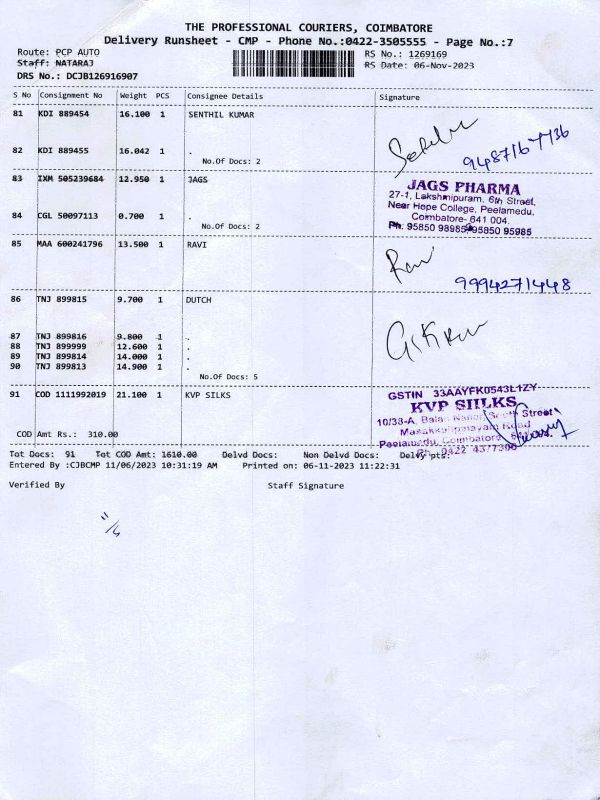 THE PROFESSIONAL COURIERS, COIMBATORE
Delivery Runsheet - CMP - Phone No.:0422-3505555 - Page No.:7
Route: PCP AUTO
RS No.: 1269169
Staff: NATARAJ
RS Date: 06-Nov-2023
DRS No.: DCJB126916907
S No Consignment No Weight PCS Consignee Details Signature
81 KDI 889454 16.100 1 SENTHIL KUMAR
82 KDI 889455 16.042 1 .
No.Of Docs: 2
83 IXM 505239684 12.950 1 JAGS
JAGS PHARMA
27-1, Lakshmipuram, 6th Street,
Near Hope College, Peelamedu,
Coimbatore- 641 004.
Ph: 95850 98985 95850 95985
84 CGL 50097113 0.700 1 .
No.Of Docs: 2
85 MAA 600241796 13.500 1 RAVI
Ravi
9994271448
86 TNJ 899815 9.700 1 DUTCH
87 TNJ 899816 9.800 1 .
88 TNJ 899999 12.600 1 .
89 TNJ 899814 14.000 1 .
90 TNJ 899813 14.900 1 .
No.Of Docs: 5
91 COD 1111992019 21.100 1 KVP SILKS
GSTIN 33AAYFK0543L1ZY
KVP SIILKS
10/38-A, Street
Road
Peelamedu, Coimbatore
Ph: 0422 4377300
COD Amt Rs.: 310.00
Tot Docs: 91 Tot COD Amt: 1610.00 Delvd Docs: Non Delvd Docs: Delvy pts:
Entered By :CJBCMP 11/06/2023 10:31:19 AM Printed on: 06-11-2023 11:22:31
Verified By Staff Signature